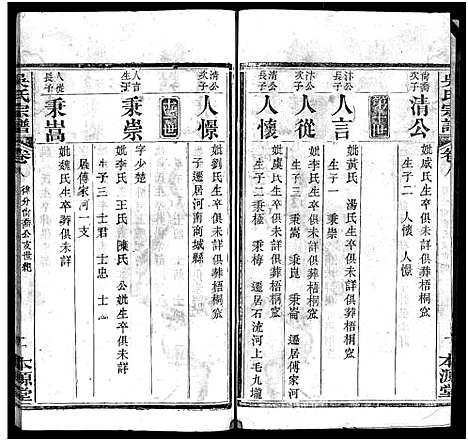 吳氏宗譜 卷八
本源堂
尚喬次子
清公
妣咸氏生卒葬俱葬梧桐窊
生子二 人懷 人憬
第十世
汴公長子
人言
妣黃氏 湯氏生卒俱葬梧桐窊
生子一 秉崇
汴公次子
人從
妣李氏生卒未詳俱葬梧桐窊
生子三 秉嵩 秉崑 秉崙 遷居傅家河
清公長子
人懷
妣虞氏生卒未詳俱葬梧桐窊
生子二 秉極 秉梅 遷居石流河上毛九壠
清公次子
人憬
妣劉氏生卒葬俱未詳
子 遷居河南商城縣
十一世
人言生子
秉崇
字少楚
妣李氏 王氏 陳氏 公妣生卒俱未詳
生子三 士君 士忠 士
居傅家河一支
人從長子
秉嵩
妣魏氏生卒葬俱未詳
吳氏宗譜 卷八
律分尚喬公支世系
本源堂